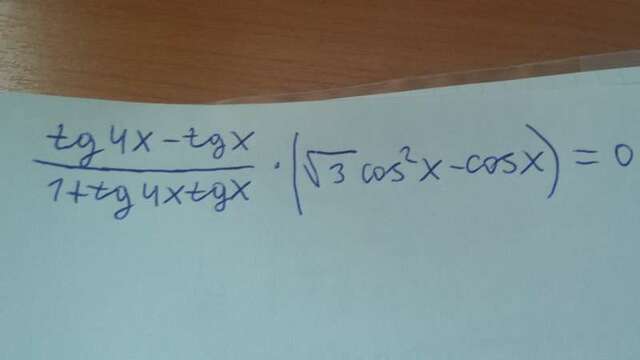 tg4x-tgx
1+tg4xtgx
· (√3 cos²x-cosx) = 0